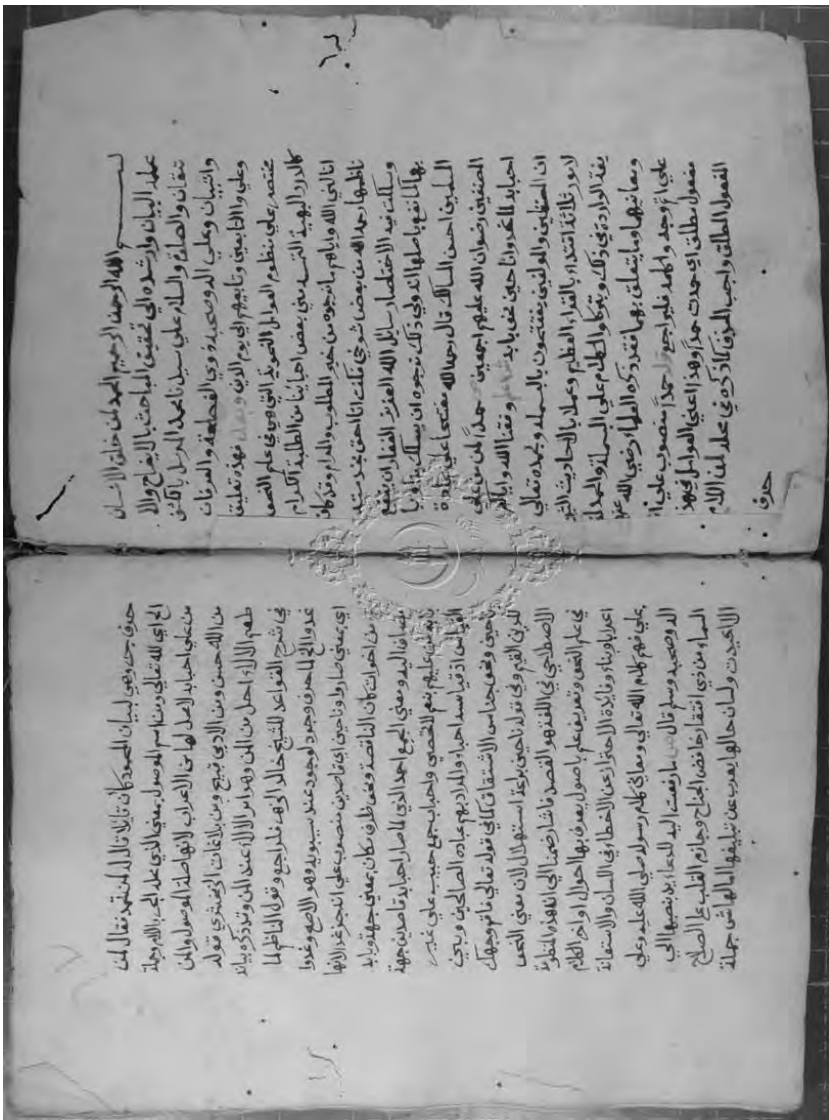 بسم الله الرحمن الرحيم الحمد لمن خلق الانسان
علمه البيان وارشده الى تحقيق المباحث بالايضاح والا
تقان والصلاة والسلام على سيدنا محمد المرسل با
والتبيان وعلى اله وصحبه ذوي الفصاحة والعرفان
وعلى والتابعين وتابعيهم الى يوم الدين وبعد فهذه تعليق
مختصر على منظوم العوامل النحوية التي هي في علم النحو
كالدرر البهية التمسه مني بعض احبابنا من الطلبة الكرام
انالني الله واياهم ما نرجوه من خير المطلوب والمرام وقد كان
ناظمها رحمه الله من بعض شيوخي فكنت انا احق بخدمته
وسلكت فيه الاختصار سايل الله العزيز الغفار ان ينفع
بها كما نفع باصلها انه ولي ذلك نرجوه ان يسلك بنا وبا
لمسلمين احسن المسالك قال رحمه الله مفتتحا على عادة
المصنفين رضوان الله عليهم اجمعين حمدا لمن من على
احبابه للاخذ وناحين نحو بابه وفقنا الله واياك
ان المصنفين والمؤلفين يفتتحون بالبسملة وبحمده تعالى
لامور ثلاثة اقتداء بالقران العظيم وعملا بالاحاديث النبو
ية الواردة في ذلك وتبركوا الكلام على البسملة والحمدلة
ومعانيها وما يتعلق بهما فقد ذكره العلماء رضي الله عنهم
على اتم وجه والحمد فليراجع قوله حمدا منصوب على انه
مفعول مطلق اي حمدت حمدا وهذا اعني العوامل في هذ
المفعول المطلق واجب الحذف كما ذكره في محله لمن اللام
حرف
حرف جر وهي لبيان المحمود كان قايلا قال له لمن تحمد فقال لمن
الخ اي لله تعالى ومن اسم الموصول بمعنى الذي محله الجر باللام وجملة
من على احبابه لا محل لها من الاعراب لانها صلة الموصول والمن
من الله حسن ومن الادمي قبيح ومن بلاغات الزمخشري قوله
طعم الالاء احلى من المن وهو امر من الالاء عند المن وقد ذكره بيانه
في شرح القواعد للشيخ خالد الازهري فليراجع وقول الناظم لما
غدوا الخ لما حرف وجود لوجود عند سيبويه وهو الاصح وغدوا
اي بمعنى صاروا وناحين اي قاصدين منصوب على انه خبر غدا لانها
من اخوات كان الناقصة ونحو ظرف مكان بمعنى جهة وبابه
مضاف اليه ومعنى الجمع احمد الذي لما صار احبابه قاصدين جهة
بابه من عليهم بنعم لا تحصى واحباب جمع حبيب على غير
القياس اذ قياسه احباء والمراد بهم عباده الصالحين وبين
ناحين ونحو جناس الاشتقاق كما في قوله تعالى فاقم وجهك
للدين القيم وفي قوله ناحين براعة استهلال لان معنى النحو
الاصطلاحي في اللغة هو القصد فاشار ضمنا الى ان هذه المنظومة
في علم النحو وتعريفه علم باصول يعرف بها احوال اواخر الكلام
اعرابا وبناء وفايدة الاحتراز عن الاخطاء في اللسان والاستعانة
على فهم كلام الله تعالى ومعاني كلام رسوله صلى الله عليه وعلى
اله وصحبه وسلم قال ص ما رفعت اليه للدعا يد بنصبها الى
السماء من ذي انتقار خافض الجناح وجازم القلب على الصلاح